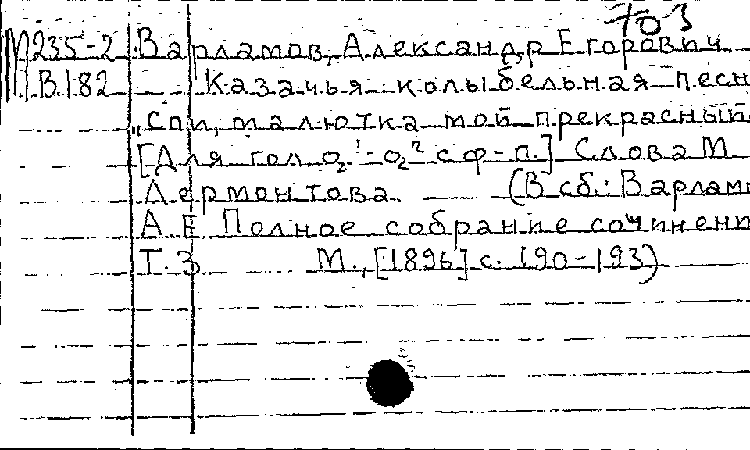 703
М235-2 Варламов, Александр Егорович
В.182 Казачья колыбельная песн
„Спи, малютка мой прекрасный
[Для гол. о₂¹-о₂² с ф-п.] Слова М
Лермонтова. (В сб.: Варлам
А Е Полное собрание сочинени
Т. 3 М., [1896] с. 190-193)